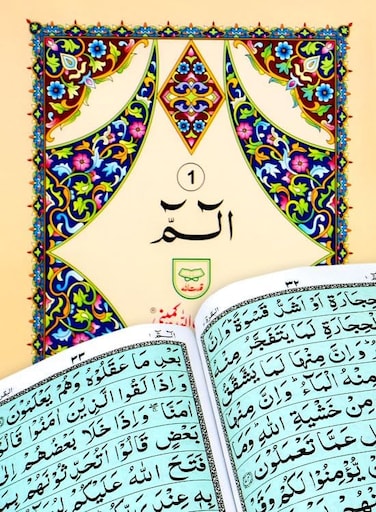 1
الٓمّٓ
٣٢
حِجَارَةِ اَوْ اَشَدُّ قَسْوَةً وَاِنَّ
حِجَارَةِ لَمَا يَتَفَجَّرُ مِنْهُ
وَاِنَّ مِنْهَا لَمَا يَشَّقَّقُ
مِنْهُ الْمَآءُ وَاِنَّ مِنْهَا
مِنْ خَشْيَةِ اللّٰهِ وَمَا
عَمَّا تَعْمَلُوْنَ
يُّؤْمِنُوْا لَكُمْ وَقَدْ
٣٣
بَعْدِ مَا عَقَلُوْهُ وَهُمْ يَعْلَمُوْنَ
وَاِذَا لَقُوا الَّذِيْنَ اٰمَنُوْا قَالُوْٓا
اٰمَنَّا وَاِذَا خَلَا بَعْضُهُمْ اِلٰى
بَعْضٍ قَالُوْٓا اَتُحَدِّثُوْنَهُمْ بِمَا
فَتَحَ اللّٰهُ عَلَيْكُمْ
بِهٖ عِنْدَ